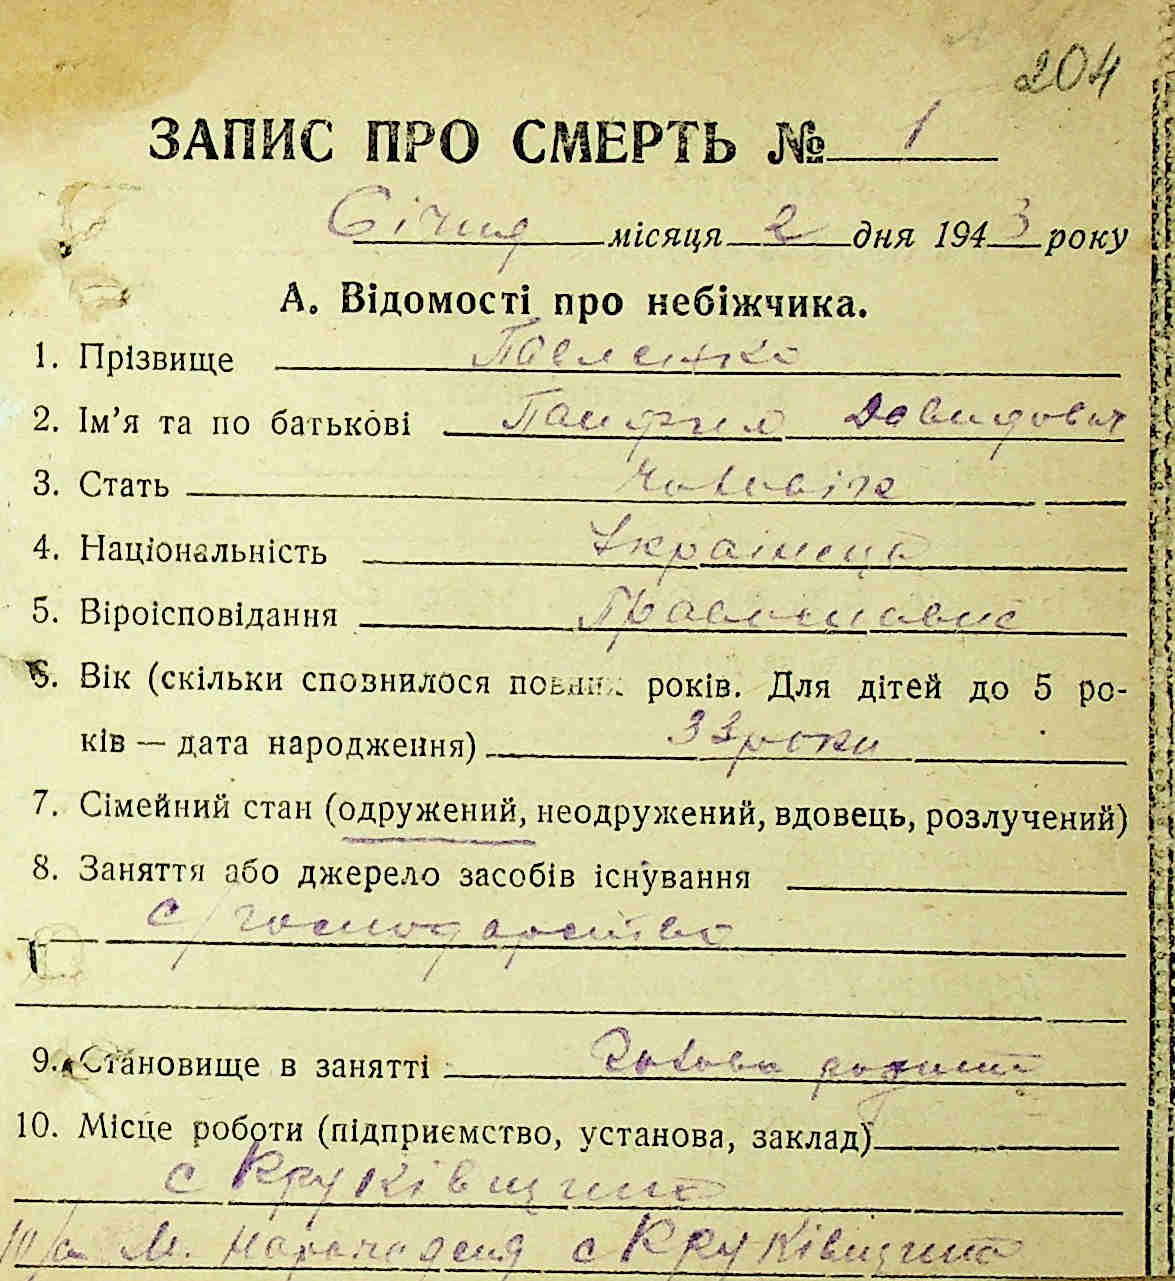 204
ЗАПИС ПРО СМЕРТЬ № 1
Січня місяця 2 дня 1943 року
А. Відомості про небіжчика.
1. Прізвище Павленко
2. Ім’я та по батькові Панфил Давидович
3. Стать Чоловік
4. Національність Українець
5. Віроісповідання Православне
6. Вік (скільки сповнилося повних років. Для дітей до 5 ро-
ків — дата народження) 33 роки
7. Сімейний стан (одружений, неодружений, вдовець, розлучений)
8. Заняття або джерело засобів існування
с/господарство
9. Становище в занятті Голова родини
10. Місце роботи (підприємство, установа, заклад)
с Круківщина
10/а М. народження с Круківщина